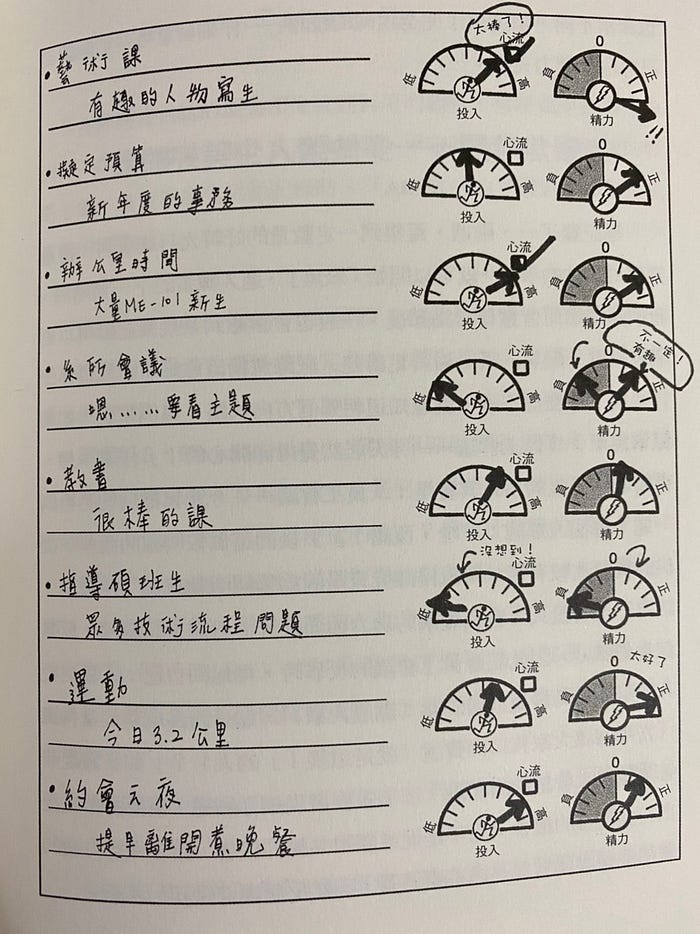 • 藝術課
有趣的人物寫生
太棒了！
心流 0
低 高 負 正
投入 精力 !!
• 擬定預算
新年度的事務
心流 0
低 高 負 正
投入 精力
• 辦公室時間
大量ME-101新生
心流 0
低 高 負 正
投入 精力
• 系所會議
嗯……要看主題
不一定！
有趣
心流 0
低 高 負 正
投入 精力
• 教書
很棒的課
心流 0
低 高 負 正
投入 精力
• 指導碩班生
眾多技術流程問題
沒想到！
心流 0
低 高 負 正
投入 精力
• 運動
今日3.2公里
太好了
心流 0
低 高 負 正
投入 精力
• 約會之夜
提早離開煮晚餐
心流 0
低 高 負 正
投入 精力